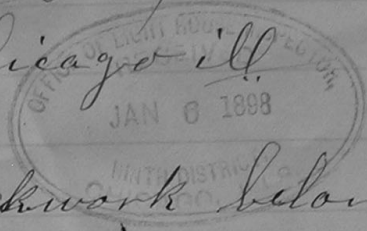 icago ill
OFFICE OF LIGHT HOUSE INSPECTOR,
RECEIVED
JAN 6 1898
NINTH DISTRICT
CHICAGO, ILLS.
kwork belon